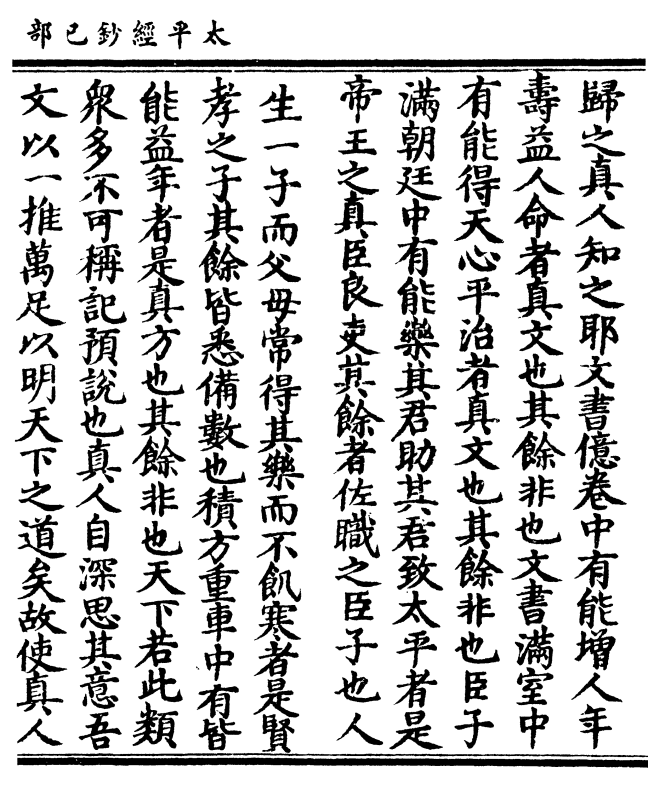 太平經鈔已部
歸之真人知之耶文書億卷中有能增人年
壽益人命者真文也其餘非也文書滿室中
有能得天心平治者真文也其餘非也臣子
滿朝廷中有能樂其君助其君致太平者是
帝王之真臣良吏其餘者佐職之臣子也人
生一子而父母常得其樂而不飢寒者是賢
孝之子其餘皆悉備數也積方重車中有皆
能益年者是真方也其餘非也天下若此類
衆多不可稱記預說也真人自深思其意吾
文以一推萬足以明天下之道矣故使真人